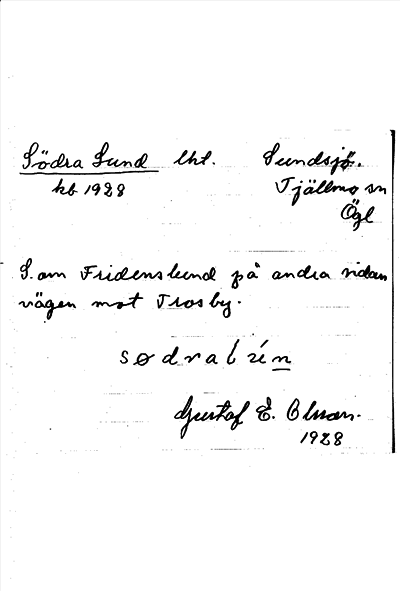 Södra Lund lht. Sundsjö.
kb 1928 Tjällmo sn
Ögl
S. om Fridenslund på andra sidan
vägen mot Trosby.
Gustaf E. Olson.
1928